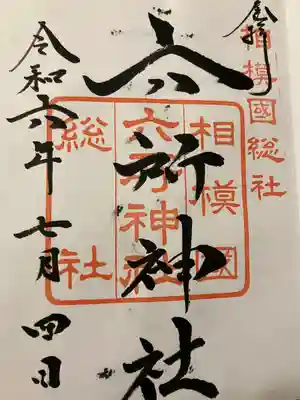 奉拝
相模國総社
六所神社
相模國
六所神社
総社
令和六年七月四日